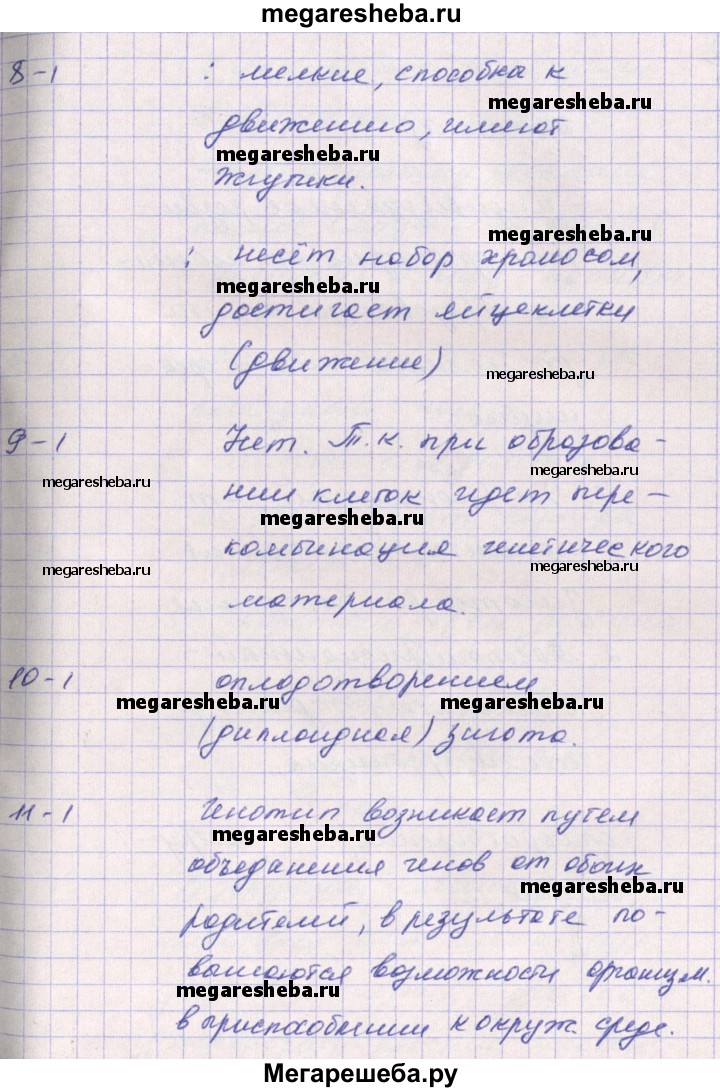 megaresheba.ru
8-1 : мелкие, способна к
megaresheba.ru
движению, имеют
megaresheba.ru
жгутики.
megaresheba.ru
: несёт набор хромосом,
megaresheba.ru
достигает яйцеклетки
(движение)
megaresheba.ru
9-1 Нет. Т.к. при образова-
megaresheba.ru
megaresheba.ru
нии клеток идет пере-
megaresheba.ru
комбинация генетического
megaresheba.ru
megaresheba.ru
материала.
10-1 оплодотворением
megaresheba.ru
megaresheba.ru
(диплоидная) зигота.
11-1 Генотип возникает путем
megaresheba.ru
объеданения генов от обоих
megaresheba.ru
родителей, в результате по-
вышаются возможности организм.
megaresheba.ru
в приспособлении к окруж. среде.
Мегарешеба.ру